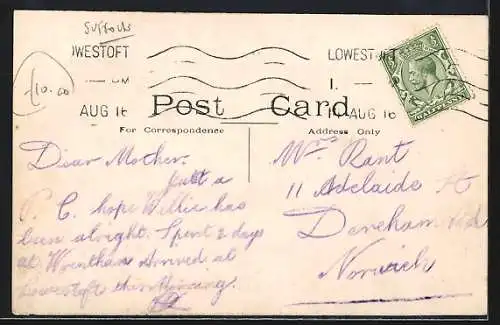 Suffolk
OWESTOFT LOWESTOFT
£10.00
AUG 16 AUG 16
Post Card
For Correspondence Address Only
HALFPENNY
Dear Mother.
Just a
P. C. hope Willie has
been alright. Spent 2 days
at Wrentham Arrived at
Lowestoft this Morning.
Mrs Rant
11 Adelaide St
Dereham Rd
Norwich